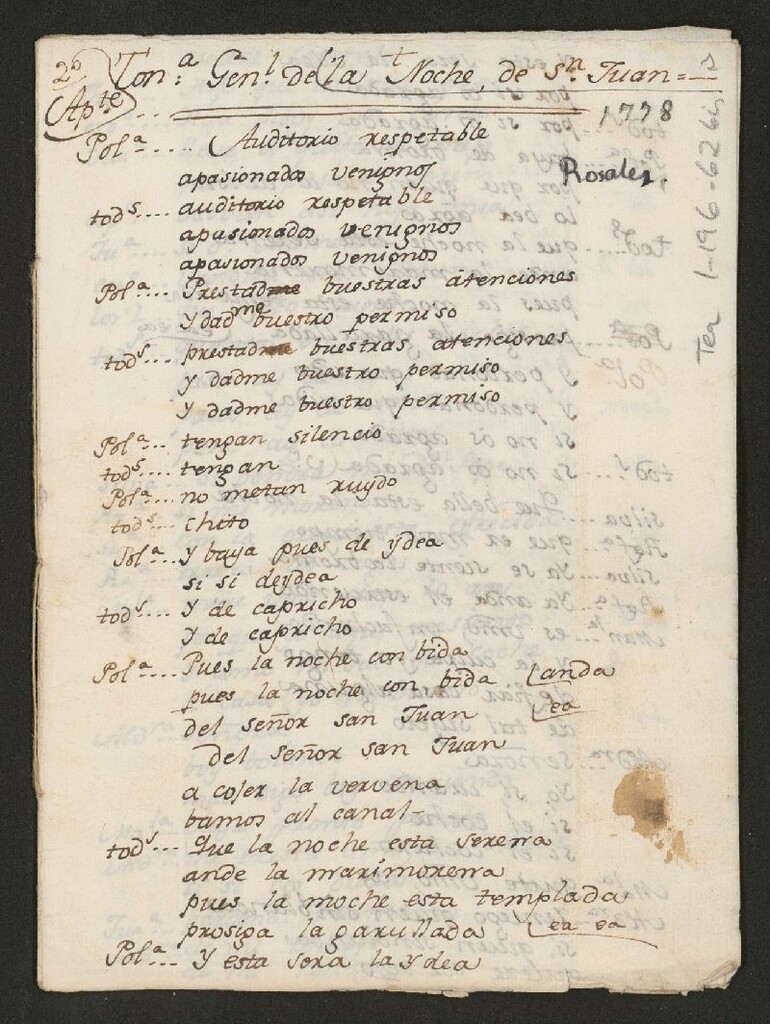 26 Ton.ª Gen.l de la t Noche, de S.n Juan =
Apte
1778
Rosales.
Ter 1-196-6264
Pol.ª .... Auditorio respetable
apasionados venignos
tod.s ... auditorio respetable
apasionados venignos
apasionados venignos
Pol.ª ... Prestadme buestras atenciones
y dadme buestro permiso
tod.s ... prestadme buestras atenciones
y dadme buestro permiso
y dadme buestro permiso
Pol.ª ... tengan silencio
tod.s ... tengan
Pol.ª ... no metan ruydo
tod.s ... chito
Pol.ª ... y baya pues de ydea
si si deydea
tod.s ... y de capricho
y de capricho
Pol.ª ... Pues la noche con bida
pues la noche con bida (anda
del señor san Juan (ea
del señor san Juan
a cojer la vervena
bamos al canal
tod.s ... que la noche esta serena
ande la marimorena
pues la noche esta templada
prosiga la garullada (ea ea
Pol.ª ... Y esta sera la ydea